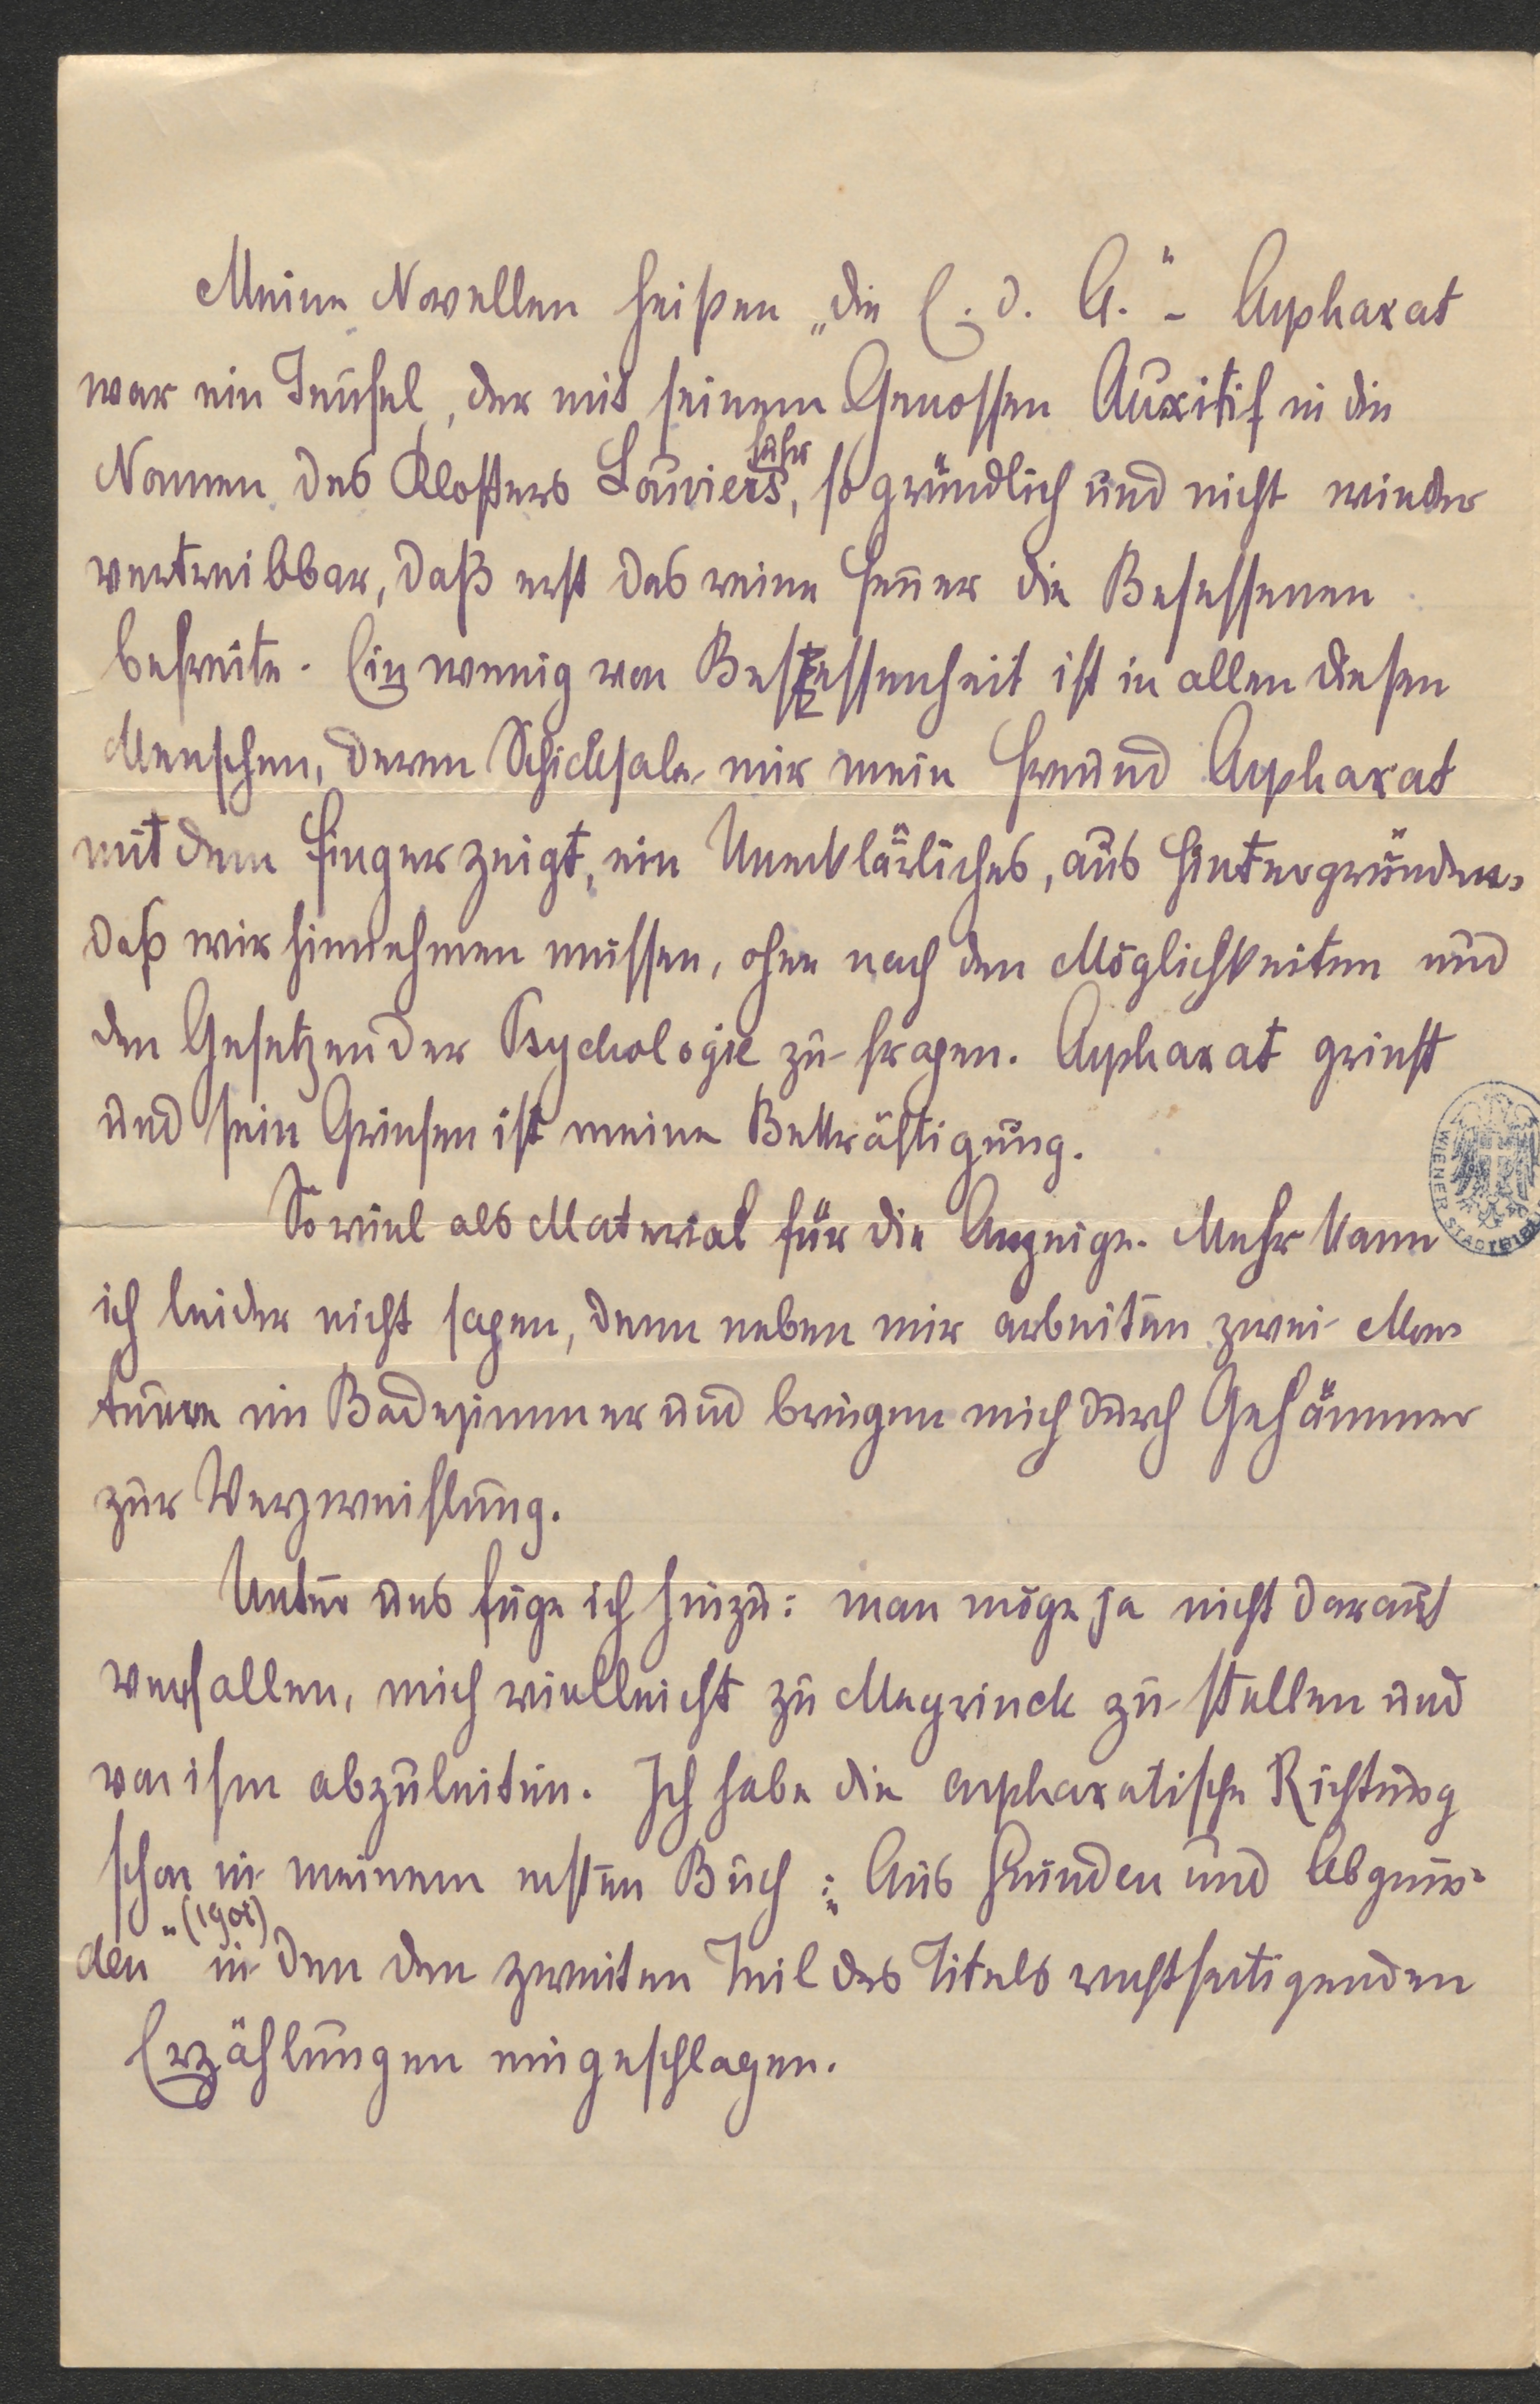 Meine Novellen heißen „die E. d. A." – Arphaxat
war ein Teufel, der mit seinem Genossen Auxitif in die
Nonnen des Klosters Louviers fuhr, so gründlich und nicht wieder
vertreibbar, daß erst das reine Feuer die Besessenen
befreite. Ein wenig von Besessenheit ist in allen diesen
Menschen, deren Schicksale mir mein Freund Arphaxat
mit dem Finger zeigt, ein Unerklärliches, aus Hintergründen,
daß wir hinnehmen müssen, ohne nach den Möglichkeiten und
den Gesetzen der Psychologie zu fragen. Arphaxat grinst
und sein Grinsen ist meine Bekräftigung.
Soviel als Material für die Anzeige. Mehr kann
ich leider nicht sagen, denn neben mir arbeiten zwei Mon-
teure im Badezimmer und bringen mich durch Gehämmer
zur Verzweiflung.
Unter uns füge ich hinzu: man möge ja nicht darauf
verfallen, mich vielleicht zu Meyrinck zu stellen und
von ihm abzuleiten. Ich habe die arphaxatische Richtung
schon in meinem ersten Buch: „Aus Gründen und Abgrün-
den" (1901) in den den zweiten Teil des Titels rechtfertigenden
Erzählungen eingeschlagen.
WIENER STADTBIB